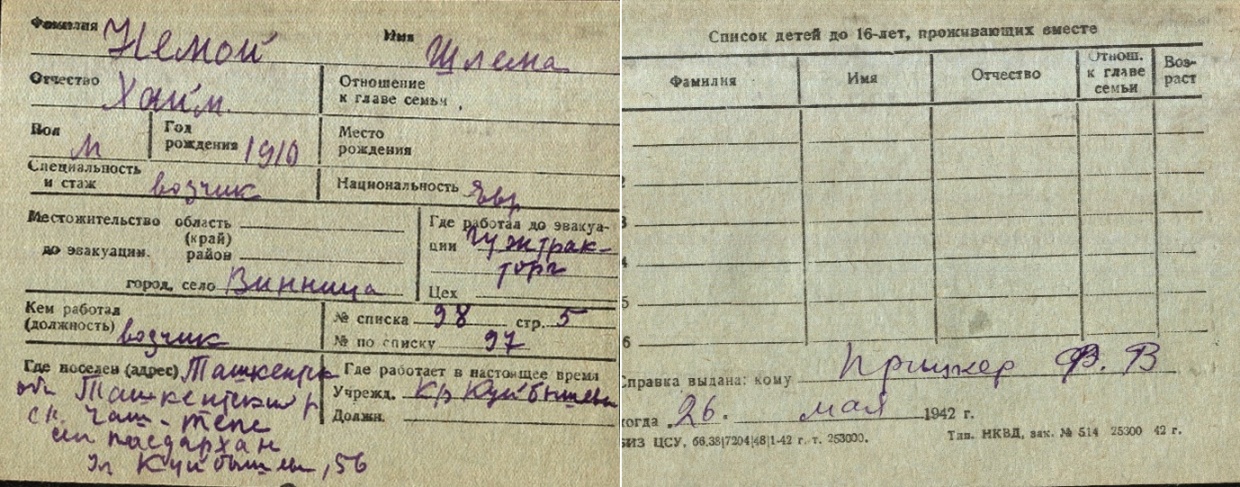 Фамилия Немой Имя Шлема
Отчество Хаим. Отношение к главе семьи
Пол М Год рождения 1910 Место рождения
Специальность и стаж возчик Национальность Явр
Местожительство до эвакуации. область (край)
район
город, село Винница
Где работал до эвакуации Гужтрак-
торг
Цех
Кем работал (должность) возчик № списка 98 стр. 5
№ по списку 97
Где поселен (адрес) Ташкентск
обл Ташкентский р
ск. Чаш-тепе
ул Куйбышев, 56
Где работает в настоящее время
Учрежд. Кр Куйбышева
Должн.
Список детей до 16-лет, проживающих вместе
Фамилия Имя Отчество Отнош. к главе семьи Воз-раст
2
3
4
5
6
Справка выдана: кому Прицкер Ф. В
когда 26. мая 1942 г.
БИЗ ЦСУ, 66,38|7204|48|1-42 г. т. 253000. Тип. НКВД, зак. № 514 25300 42 г.